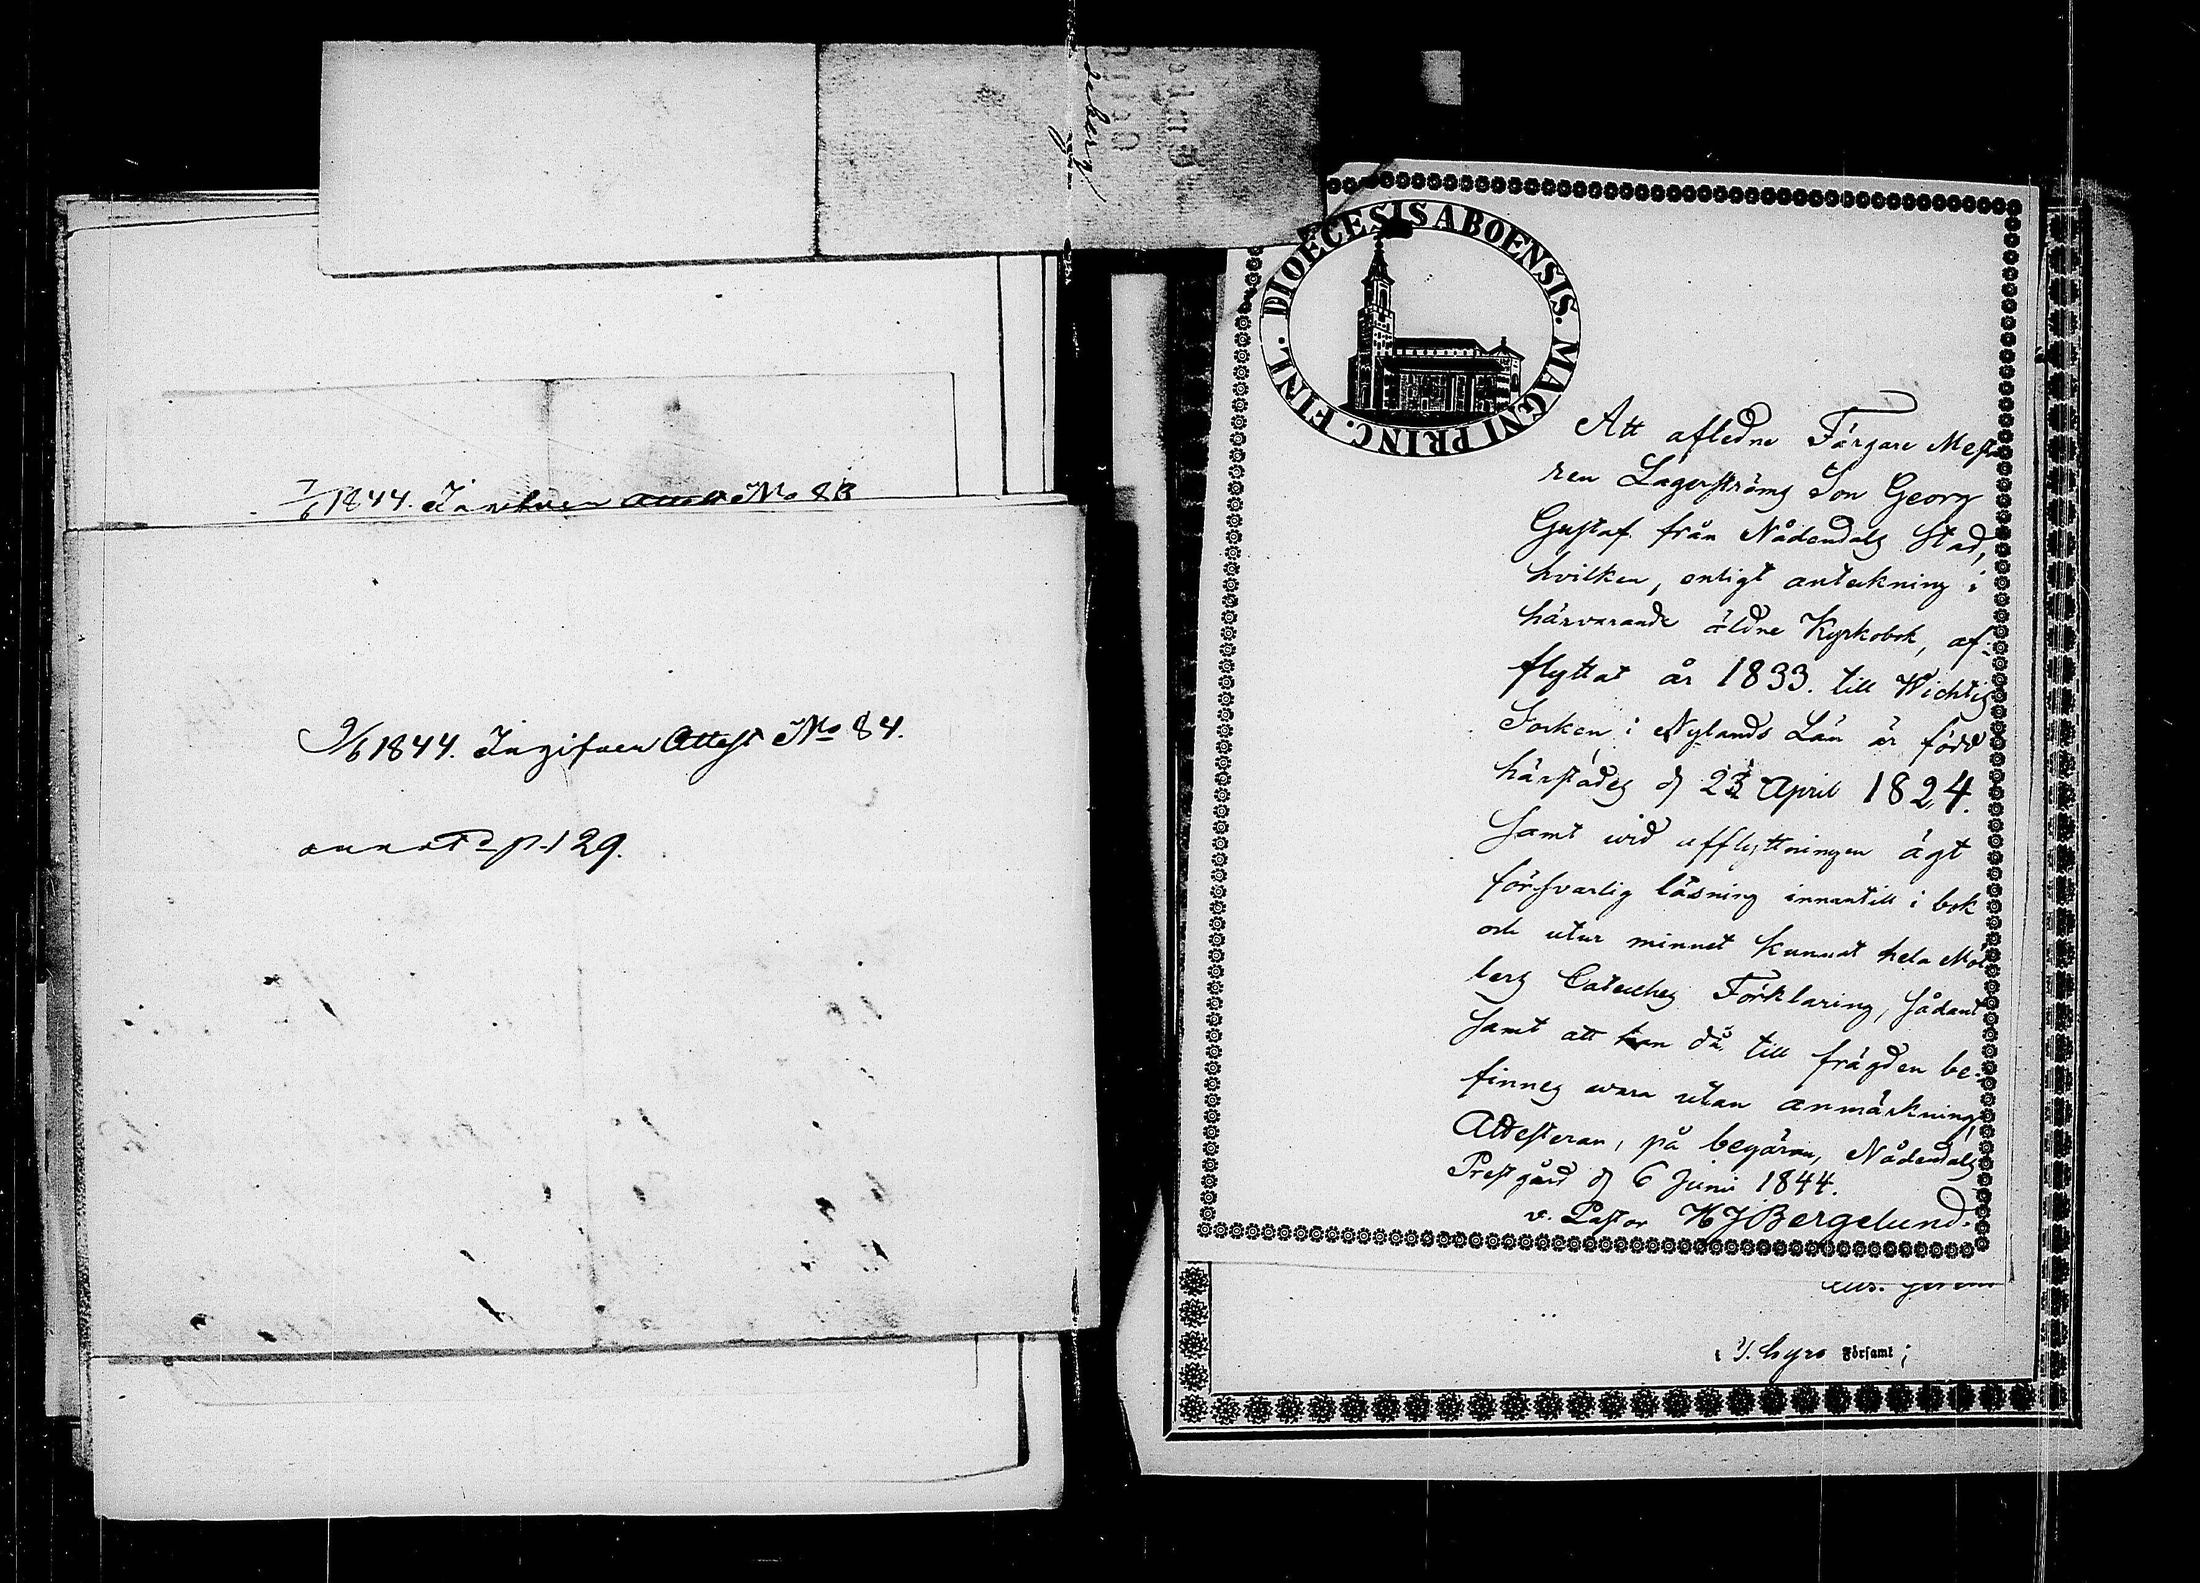 7/6 1844. Ingifven Attest No 83
9/6 1844. Ingifven Attest No 84.
annot. p. 129.
DIOECESIS ABOENSIS. MAGNI PRINC. FINL.
Att afledne Färgare Mesta
ren Lagerströms Son Georg
Gustaf från Nådendals Stad,
hvilken, enligt anteckning i
härvarande äldre Kyrkobok, af-
flyttat år 1833. till Wichtis
Socken i Nylands Län är född
härstädes d 23 April 1824.
samt wid afflyttningen ägt
försvarlig läsning innantill i bok
och utur minnet kunnat hela Möl
lers Cateches Förklaring, sådant
samt att han då till frägden be-
finnes wara utan anmärkning,
Attesteran, på begäran, Nådendals
Prestgård d 6 Junii 1844.
v. Pastor H J Bergelund.
kyro Församl